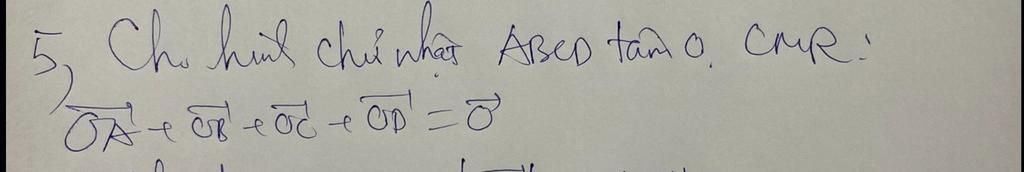 5, Cho hình chữ nhật ABCD tâm O. CMR:
$\overrightarrow{OA} + \overrightarrow{OB} + \overrightarrow{OC} + \overrightarrow{OD} = \overrightarrow{O}$